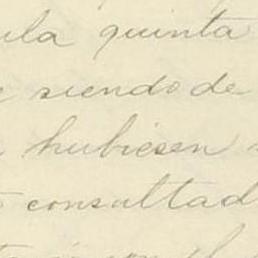 ula quinta
siendo de
hubiesen
consultad